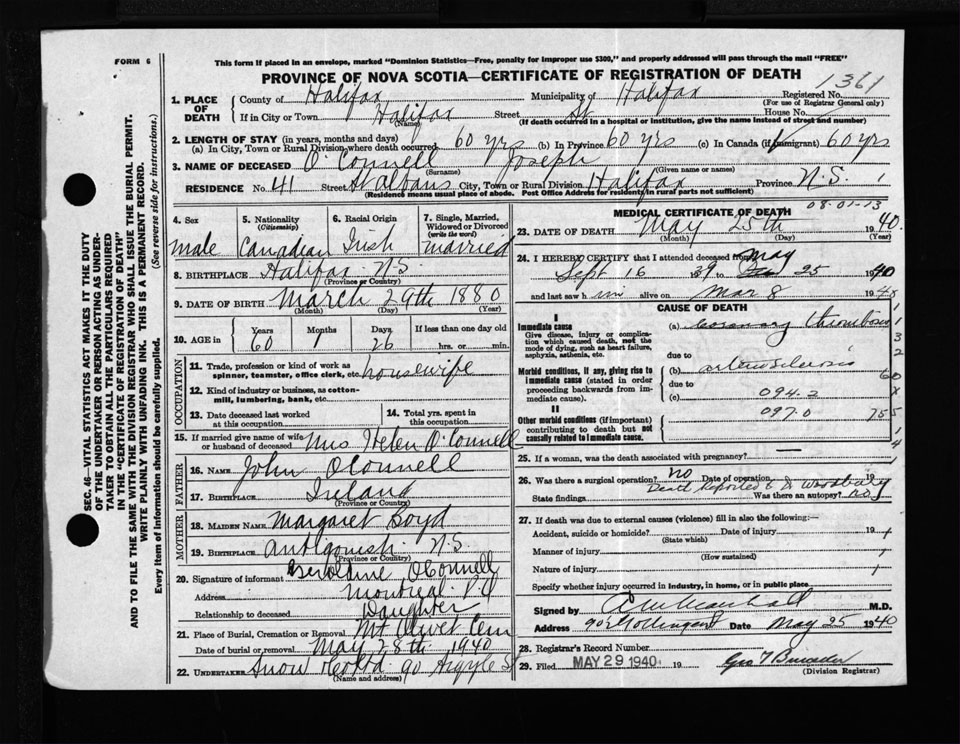 FORM 6
This form if placed in an envelope, marked "Dominion Statistics—Free, penalty for improper use $300," and properly addressed will pass through the mail "FREE"
PROVINCE OF NOVA SCOTIA—CERTIFICATE OF REGISTRATION OF DEATH
1361
1. PLACE OF DEATH County of Halifax Municipality of Halifax Registered No.
(For use of Registrar General only)
If in City or Town Halifax Street St House No.
(Name) (If death occurred in a hospital or institution, give the name instead of street and number)
2. LENGTH OF STAY (in years, months and days)
(a) In City, Town or Rural Division where death occurred 60 yrs (b) In Province 60 yrs (c) In Canada (if immigrant) 60 yrs
3. NAME OF DECEASED O'Connell Joseph
(Surname) (Given name or names)
RESIDENCE No. 41 Street St Albans City, Town or Rural Division Halifax Province N.S.
(Residence means usual place of abode. Post Office Address for residents in rural parts not sufficient)
4. Sex male
5. Nationality (Citizenship) Canadian
6. Racial Origin Irish
7. Single, Married, Widowed or Divorced (write the word) married
8. BIRTHPLACE Halifax N.S.
(Province or Country)
9. DATE OF BIRTH March 29th 1880
(Month) (Day) (Year)
10. AGE in Years 60 Months 1 Days 26 If less than one day old hrs. or min.
OCCUPATION
11. Trade, profession or kind of work as spinner, teamster, office clerk, etc. housewife
12. Kind of industry or business, as cotton-mill, lumbering, bank, etc.
13. Date deceased last worked at this occupation
14. Total yrs. spent in this occupation
15. If married give name of wife or husband of deceased Mrs Helen O'Connell
FATHER
16. NAME John OConnell
17. BIRTHPLACE Ireland
(Province or Country)
MOTHER
18. MAIDEN NAME Margaret Boyd
19. BIRTHPLACE Antigonish N.S.
(Province or Country)
20. Signature of informant Geraldine OConnell
Address Montreal P.Q
Relationship to deceased Daughter
21. Place of Burial, Cremation or Removal Mt Olivet Cem
Date of burial or removal May 28th 1940
22. UNDERTAKER Snow & Co Ltd 90 Argyle St
(Name and address)
MEDICAL CERTIFICATE OF DEATH
08-01-13
23. DATE OF DEATH May 25th 1940
(Month) (Day) (Year)
24. I HEREBY CERTIFY that I attended deceased from
Sept 16 39 to May 25 1940
and last saw him alive on Mar 8 1940
CAUSE OF DEATH
I
Immediate cause
Give disease, injury or complication which caused death, not the mode of dying, such as heart failure, asphyxia, asthenia, etc.
(a) Coronary thrombosis
due to
Morbid conditions, if any, giving rise to immediate cause (stated in order proceeding backwards from immediate cause).
(b) arteriosclerosis
due to
(c) 094.2
097.0
II
Other morbid conditions (if important) contributing to death but not causally related to immediate cause.
25. If a woman, was the death associated with pregnancy?
26. Was there a surgical operation? no Date of operation 19
State findings Was there an autopsy? no
Death Reported to
27. If death was due to external causes (violence) fill in also the following:—
Accident, suicide or homicide? Date of injury 19
(State which)
Manner of injury
(How sustained)
Nature of injury
Specify whether injury occurred in industry, in home, or in public place
Signed by M.D.
Address Date May 25 1940
28. Registrar's Record Number
29. Filed MAY 29 1940 19
(Division Registrar)
SEC. 46—VITAL STATISTICS ACT MAKES IT THE DUTY
OF THE UNDERTAKER OR PERSON ACTING AS UNDER-
TAKER TO OBTAIN ALL THE PARTICULARS REQUIRED
IN THE "CERTIFICATE OF REGISTRATION OF DEATH"
AND TO FILE THE SAME WITH THE DIVISION REGISTRAR WHO SHALL ISSUE THE BURIAL PERMIT.
WRITE PLAINLY WITH UNFADING INK. THIS IS A PERMANENT RECORD.
Every item of Information should be carefully supplied. (See reverse side for instructions.)